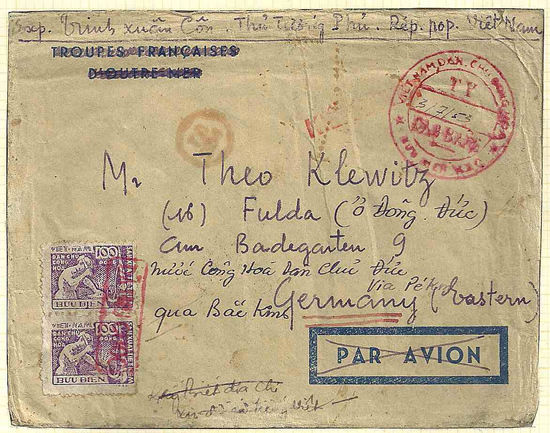 Exp. Trinh xuân Côn. Thủ Tướng Phủ. Rép. pop. Viêt Nam
TROUPES FRANÇAISES
D'OUTRE-MER
VIET-NAM DAN CHU CONG HOA
T.T
3/7/53
Mr Theo Klewitz
(16) Fulda (ở Đông Đức)
am Badegarten 9
nước Công Hoà Dân Chủ Đức
Via Pékin
qua Bắc kinh Germany (Eastern)
VIET-NAM
DAN CHU
CONG
HOA
100
DONG
BUU DIEN
VIET-NAM
DAN CHU
CONG
HOA
100
DONG
BUU DIEN
PAR AVION